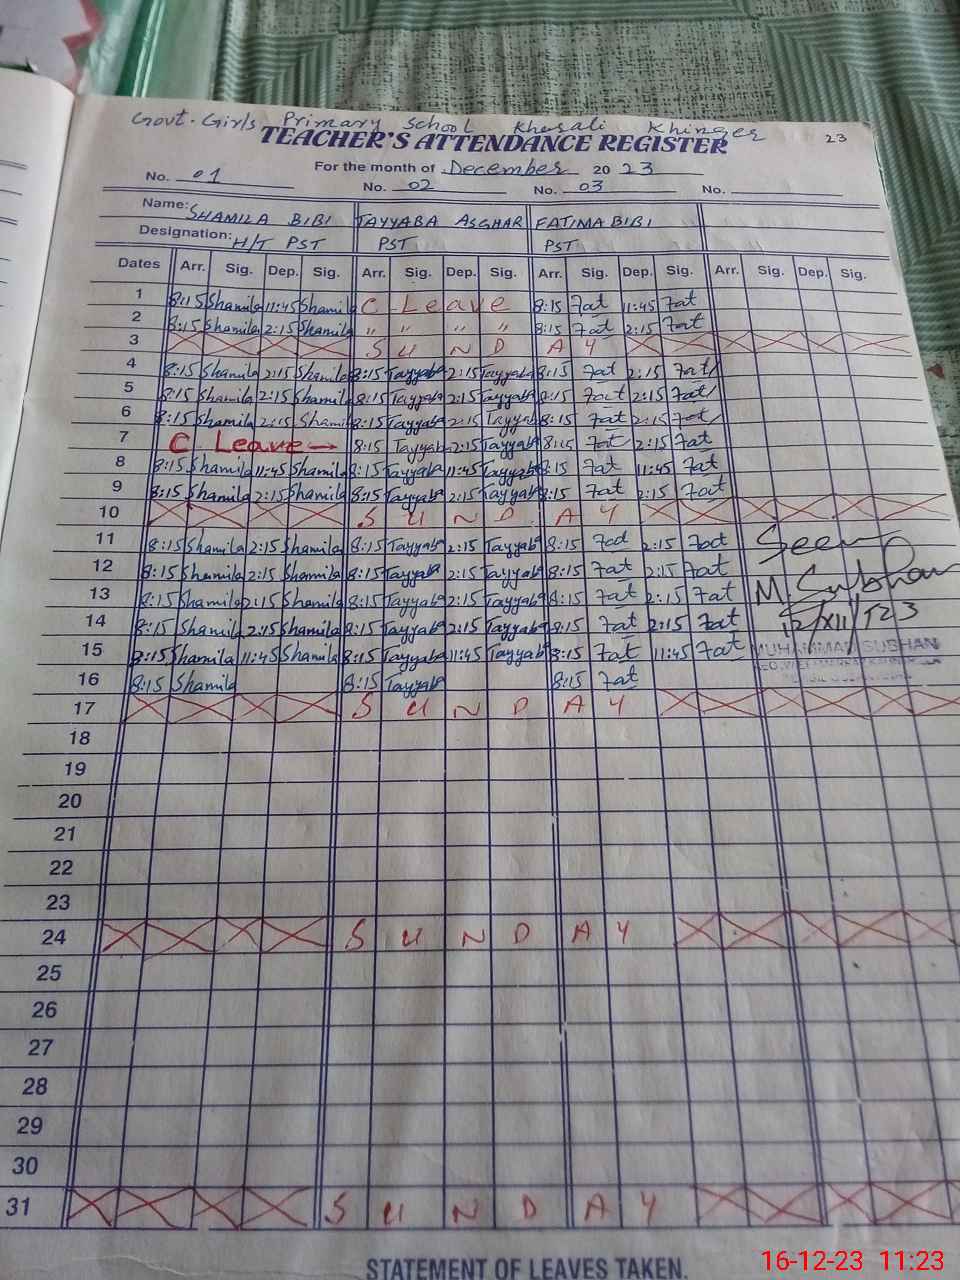 Govt. Girls Primary School Khinger
TEACHER'S ATTENDANCE REGISTER 23
For the month of December 20 23
No. 01 No. 02 No. 03 No.
Name: SHAMILA BIBI TAYYABA ASGHAR FATIMA BIBI
Designation: H/T PST PST PST
Dates Arr. Sig. Dep. Sig. Arr. Sig. Dep. Sig. Arr. Sig. Dep. Sig. Arr. Sig. Dep. Sig.
1 8:15 Shamila 11:45 Shamila C Leave 8:15 Fat 11:45 Fat
2 8:15 Shamila 2:15 Shamila " " " " 8:15 Fat 2:15 Fat
3 S U N D A Y
4 8:15 Shamila 2:15 Shamila 8:15 Tayyaba 2:15 Tayyaba 8:15 Fat 2:15 Fat
5 8:15 Shamila 2:15 Shamila 8:15 Tayyaba 2:15 Tayyaba 8:15 Fat 2:15 Fat
6 8:15 Shamila 2:15 Shamila 8:15 Tayyaba 2:15 Tayyaba 8:15 Fat 2:15 Fat
7 C Leave → 8:15 Tayyaba 2:15 Tayyaba 8:15 Fat 2:15 Fat
8 8:15 Shamila 11:45 Shamila 8:15 Tayyaba 11:45 Tayyaba 8:15 Fat 11:45 Fat
9 8:15 Shamila 2:15 Shamila 8:15 Tayyaba 2:15 Tayyaba 8:15 Fat 2:15 Fat
10 S U N D A Y
11 8:15 Shamila 2:15 Shamila 8:15 Tayyaba 2:15 Tayyaba 8:15 Fat 2:15 Fat Seen
12 8:15 Shamila 2:15 Shamila 8:15 Tayyaba 2:15 Tayyaba 8:15 Fat 2:15 Fat
13 8:15 Shamila 2:15 Shamila 8:15 Tayyaba 2:15 Tayyaba 8:15 Fat 2:15 Fat M. Subhan
14 8:15 Shamila 2:15 Shamila 8:15 Tayyaba 2:15 Tayyaba 8:15 Fat 2:15 Fat 12/XII/023
15 8:15 Shamila 11:45 Shamila 8:15 Tayyaba 11:45 Tayyaba 8:15 Fat 11:45 Fat MUHAMMAD SUBHAN
16 8:15 Shamila 8:15 Tayyaba 8:15 Fat
17 S U N D A Y
18
19
20
21
22
23
24 S U N D A Y
25
26
27
28
29
30
31 S U N D A Y
STATEMENT OF LEAVES TAKEN.
16-12-23 11:23